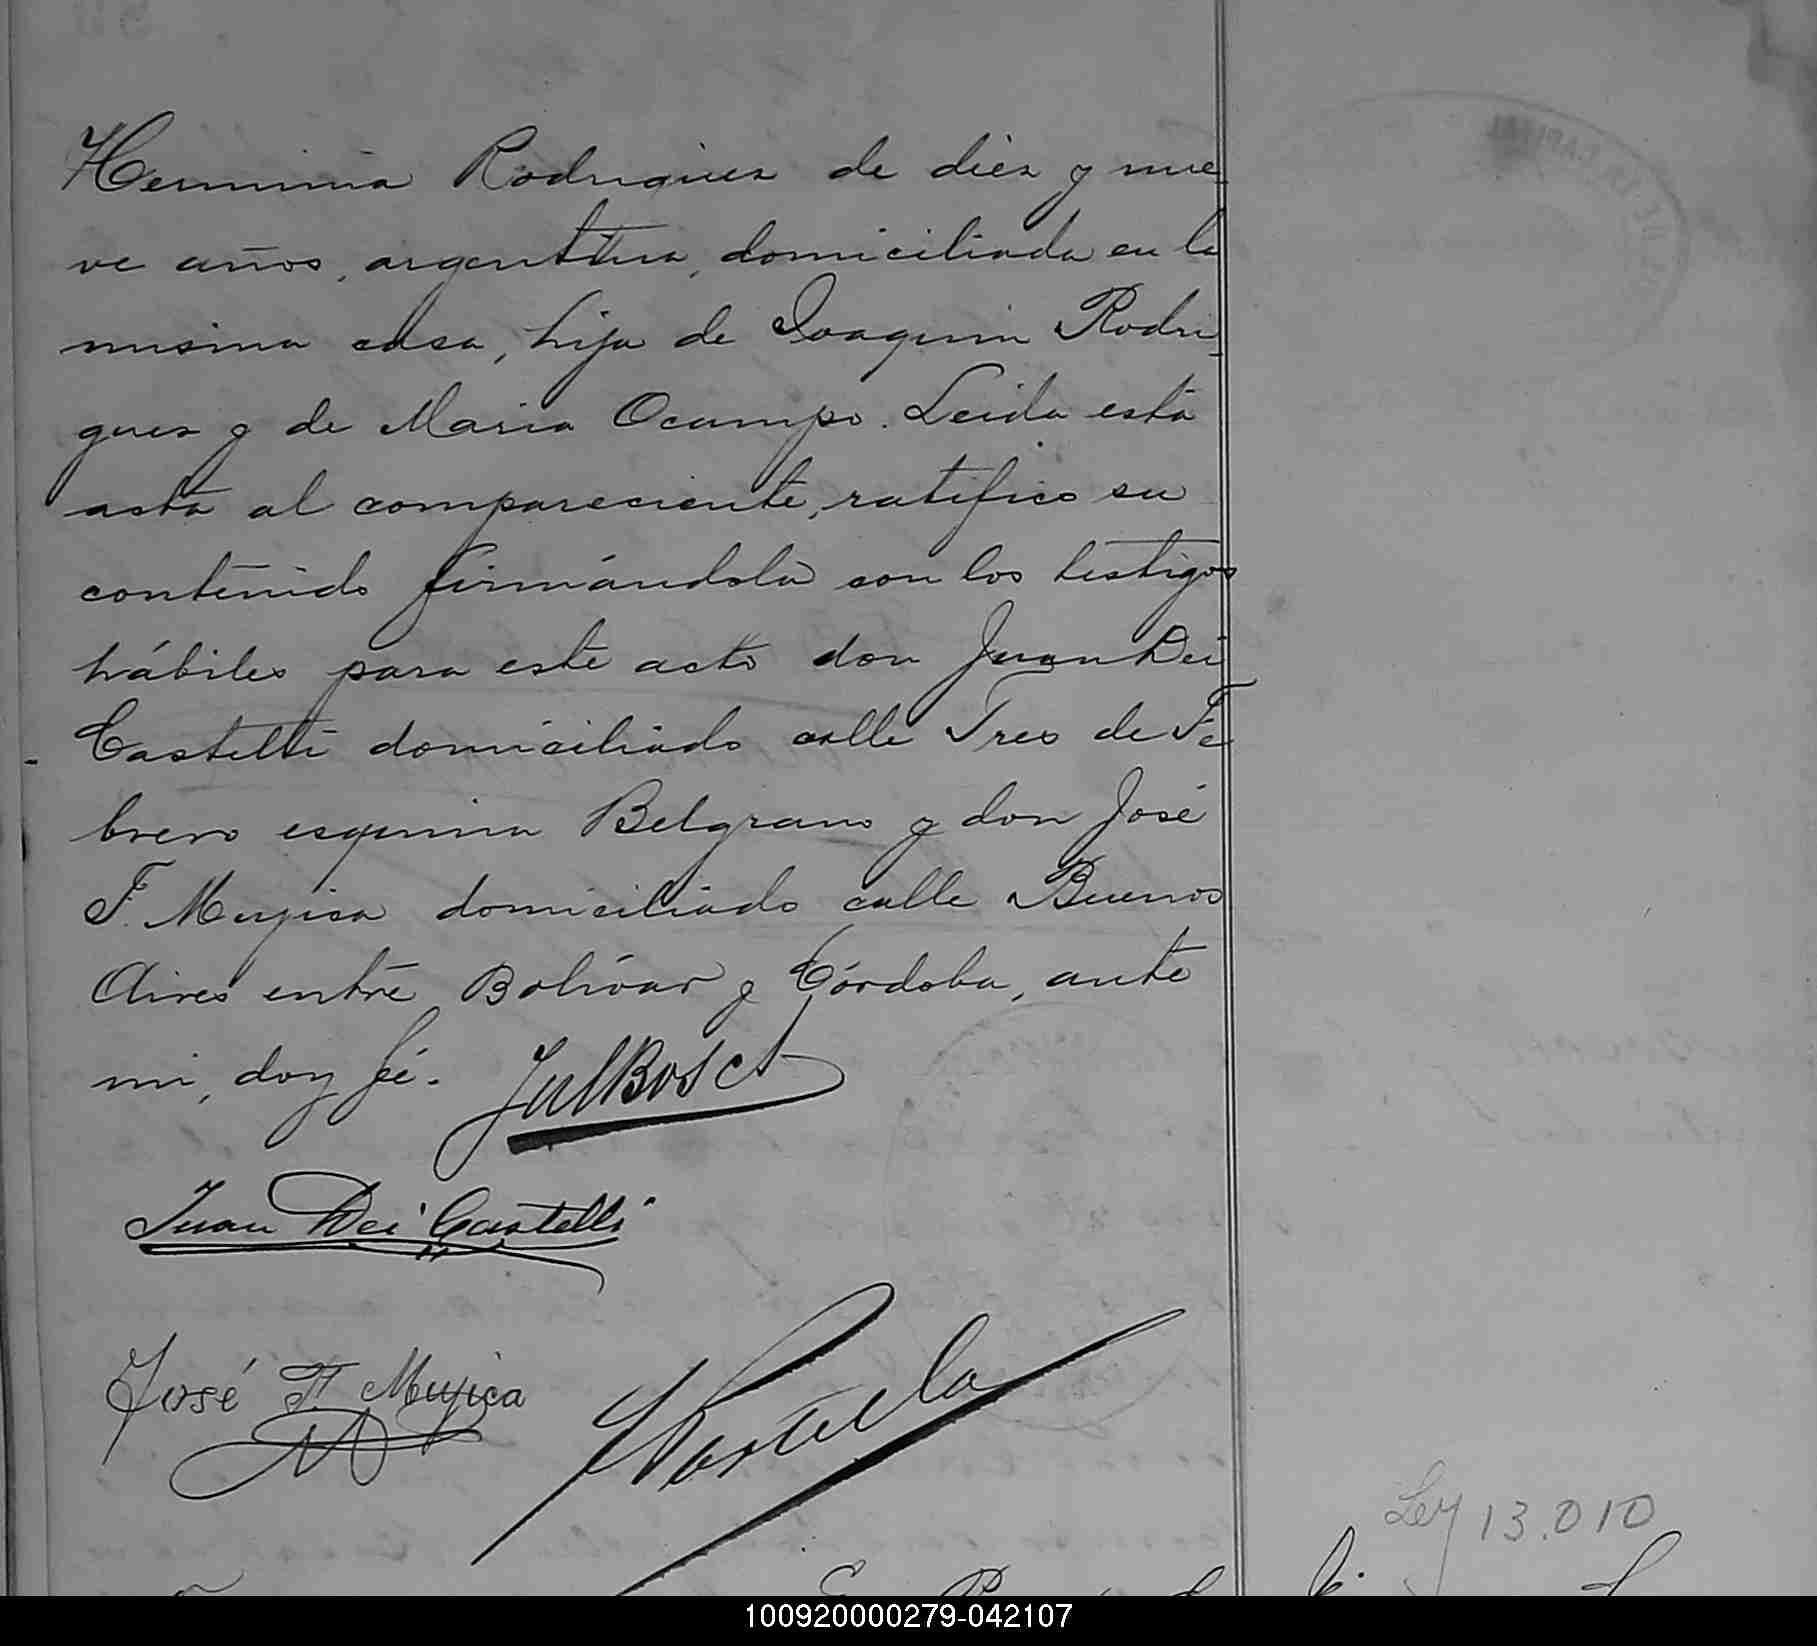 Herminia Rodriguez de diez y nue
ve años, argentina, domiciliada en la
misma casa, hija de Joaquin Rodri
guez y de Maria Ocampo. Leida esta
acta al compareciente, ratificó su
contenido firmándola con los testigos
hábiles para este acto don Juan Dei
Castelli domiciliado calle Tres de Fe
brero esquina Belgrano y don José
F. Mujica domiciliado calle Buenos
Aires entre Bolívar y Córdoba, ante
mi, doy fé.
Juan Dei Castelli
José F. Mujica
Ley 13.010
100920000279-042107